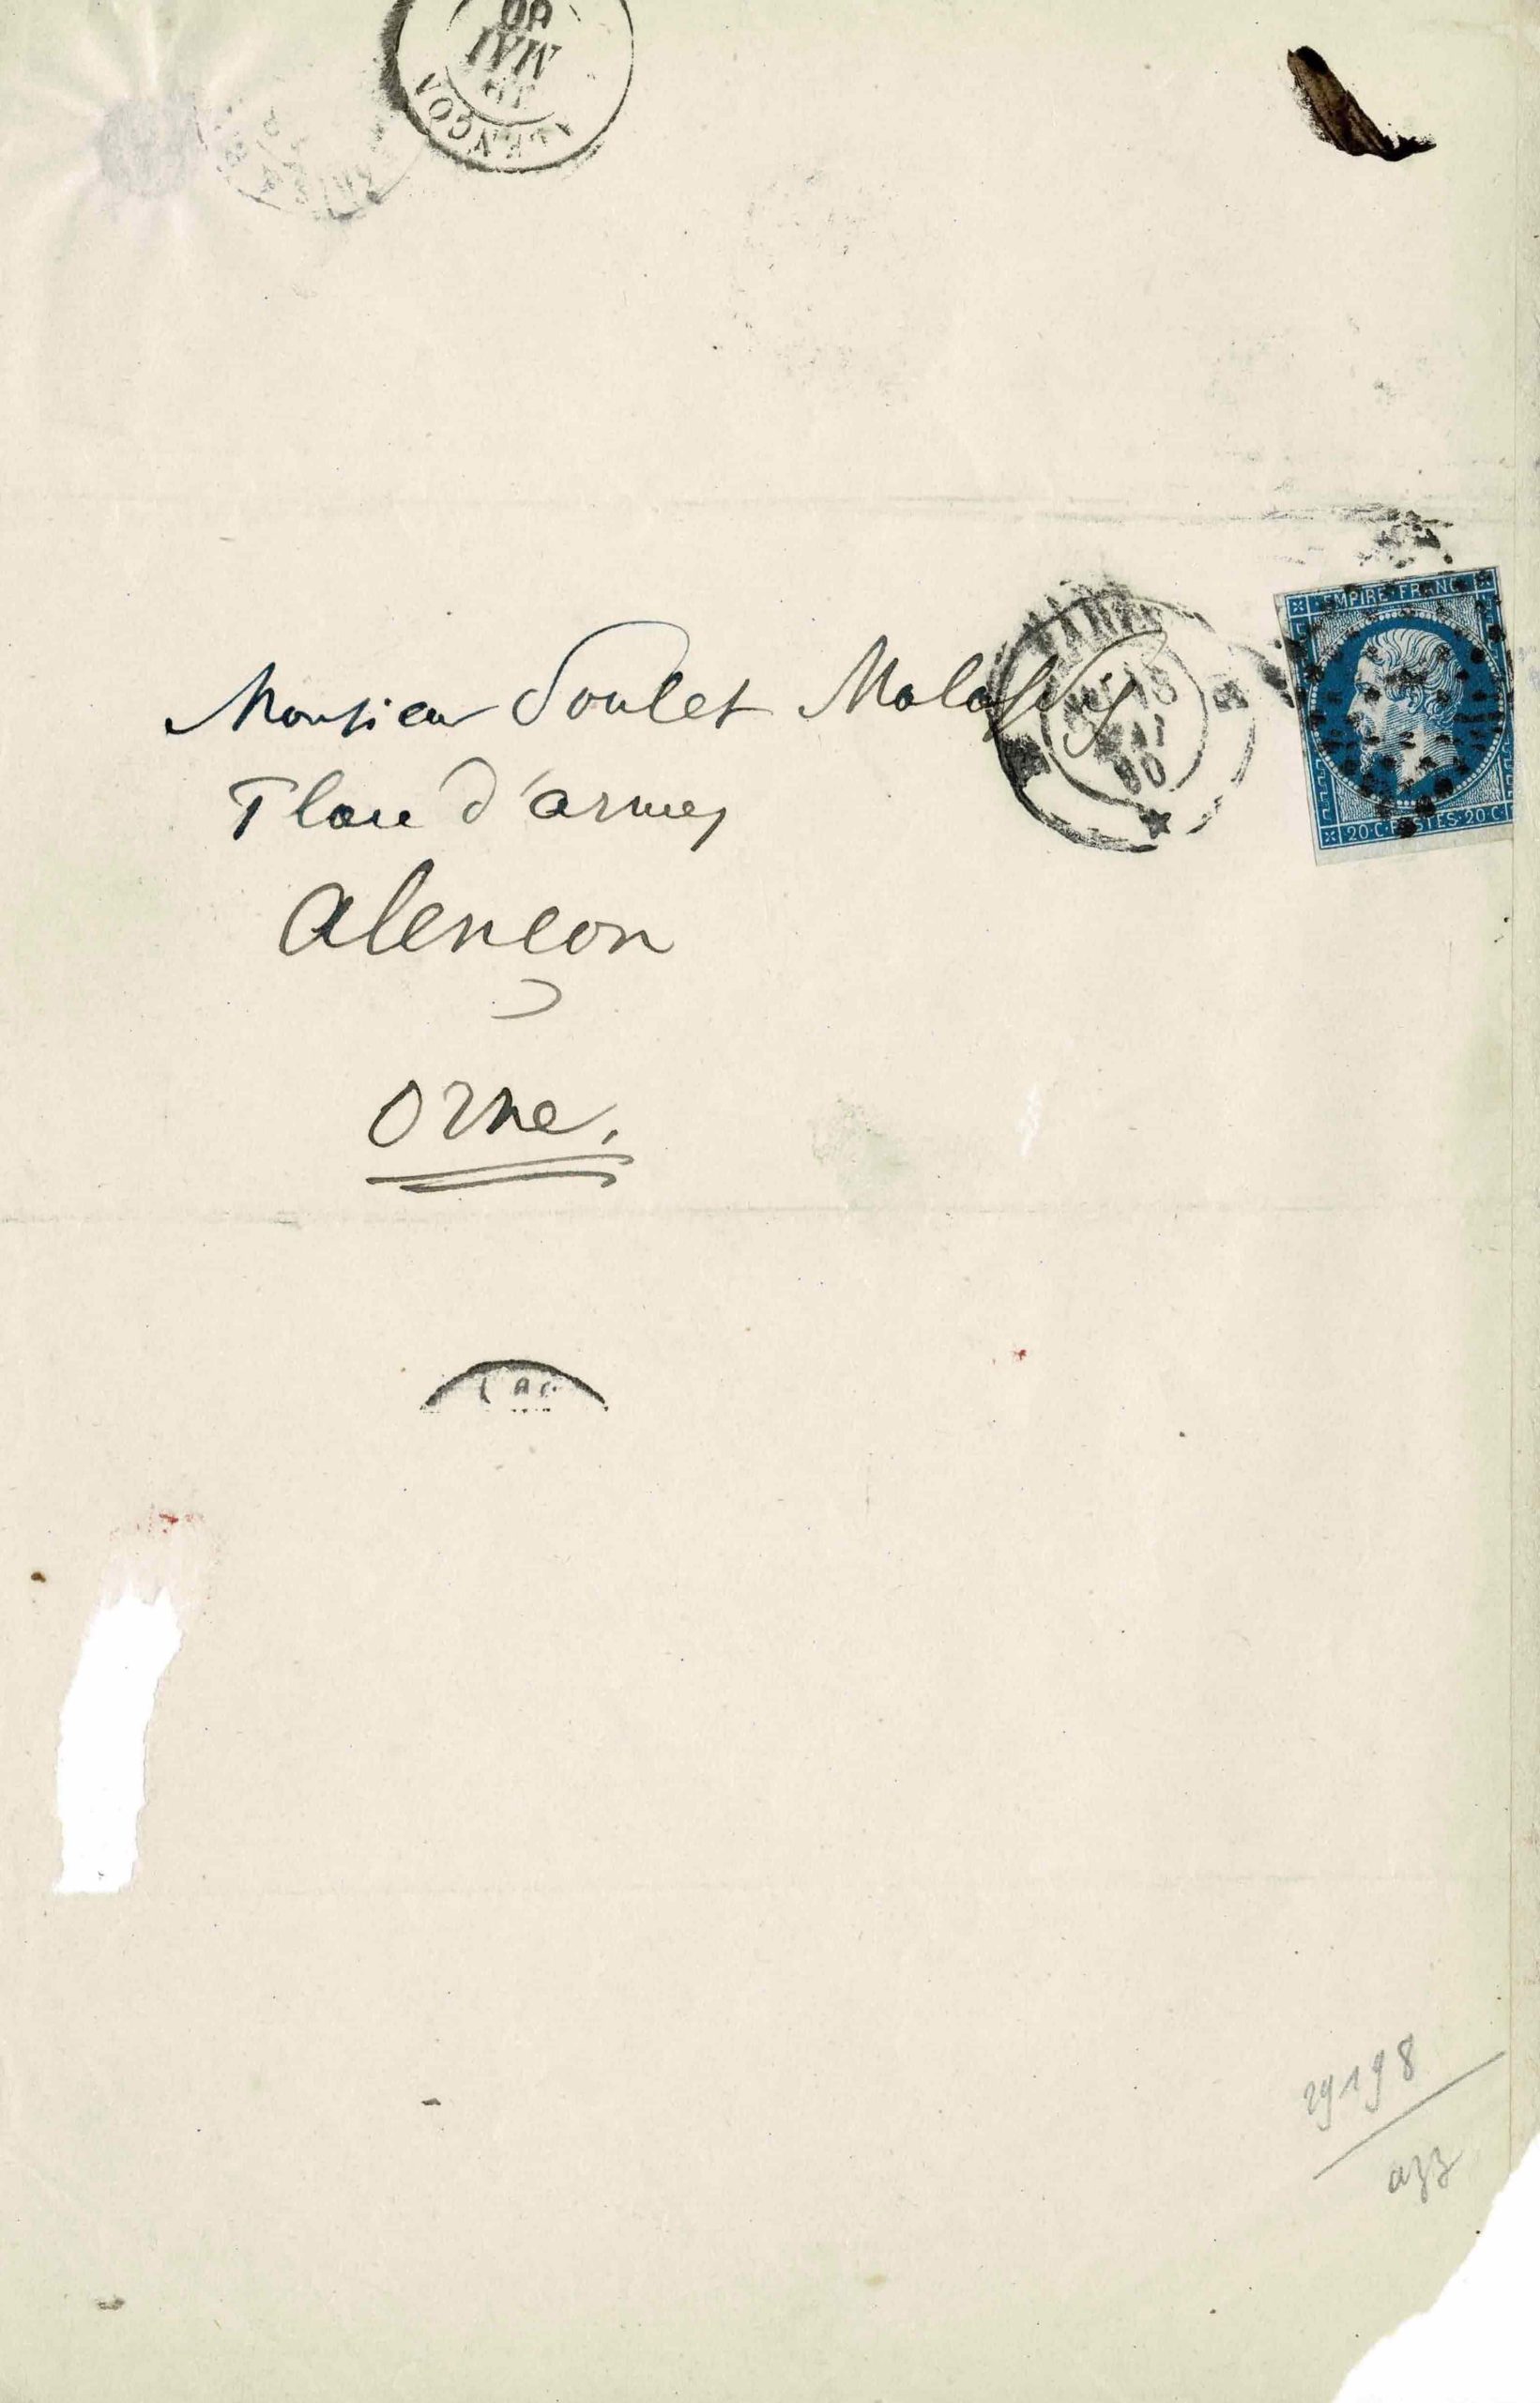 60
MAI
ALENÇON
EMPIRE FRANC
Monsieur Poulet Malassis
PARIS
18
MAI
60
20 C. POSTES. 20 C.
Place d'armes
Alençon
Orne.
29198
azz